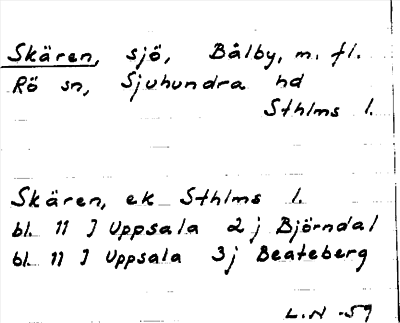 Skären, sjö, Bålby, m. fl.
Rö sn, Sjuhundra hd
Sthlms l.
Skären, ek Sthlms l.
bl. 11 I Uppsala 2j Björndal
bl. 11 I Uppsala 3j Beateberg
L.N -59